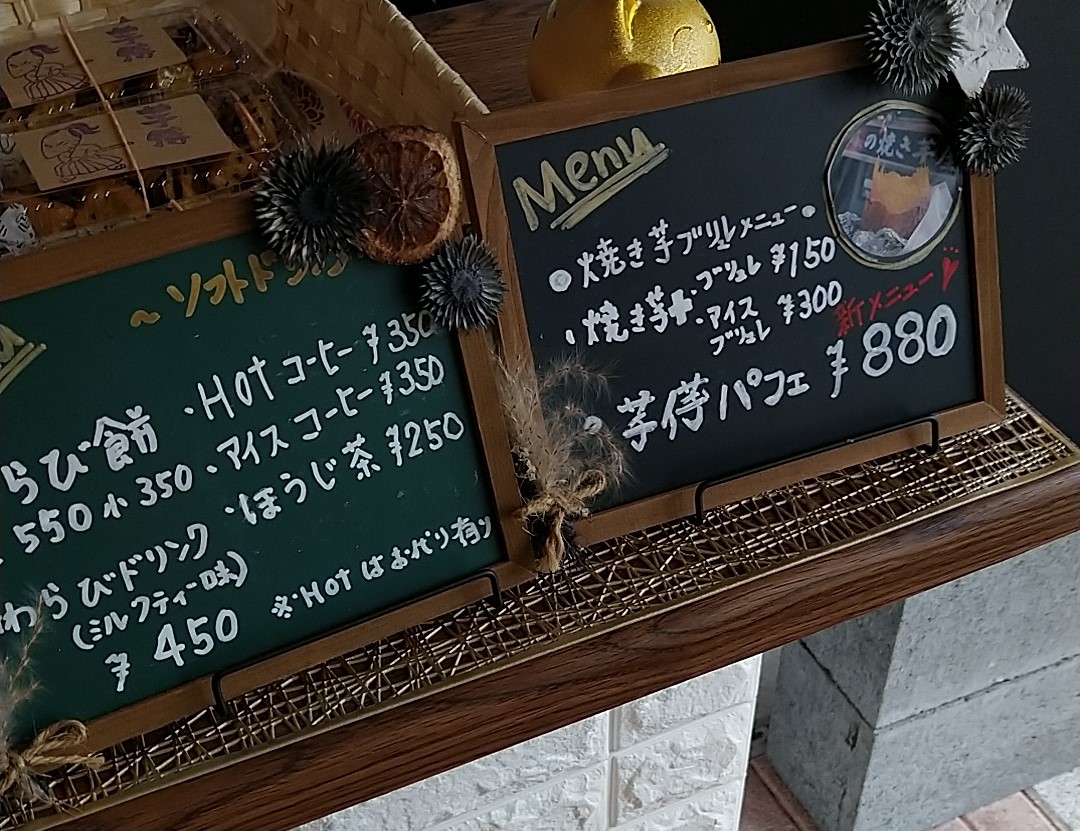 ~ソフトドリ
らび餅
550 小 350
わらびドリンク
(ミルクティー味)
¥450
・Hot コーヒー ¥350
・アイスコーヒー ¥350
・ほうじ茶 ¥250
※Hotはおかわり有り
Menu
●焼き芋ブリュレメニュー●
・焼き芋+・ブリュレ ¥150
・アイスブリュレ ¥300
新メニュー♡
パフェ ¥880
の焼き芋